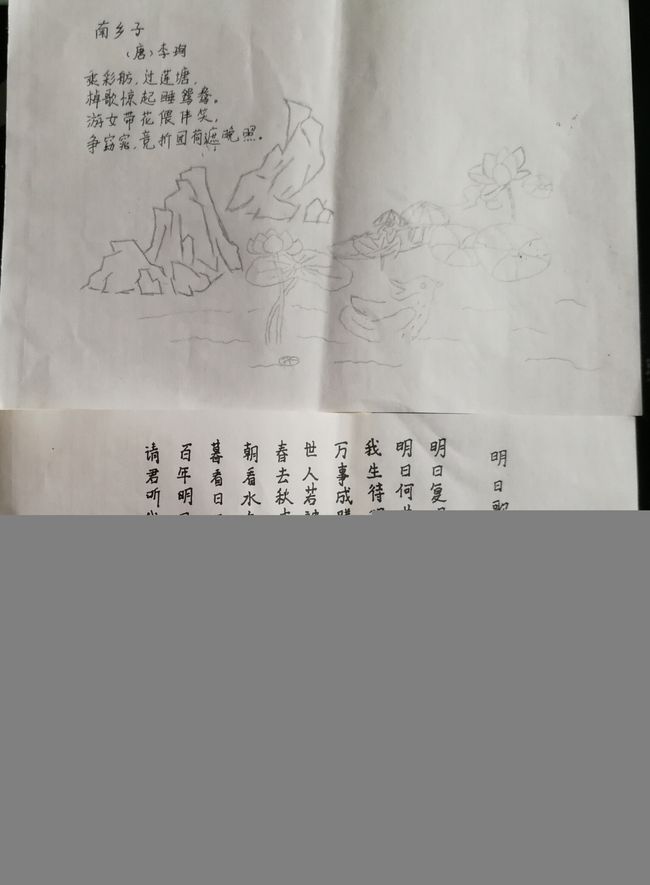 南乡子
(唐)李珣
乘彩舫,过莲塘,
棹歌惊起睡鸳鸯。
游女带花偎伴笑,
争窈窕,竞折团荷遮晚照。
明日歌
明日复
明日何
我生待
万事成
世人若
春去秋
朝看水
暮看日
百年明
请君听